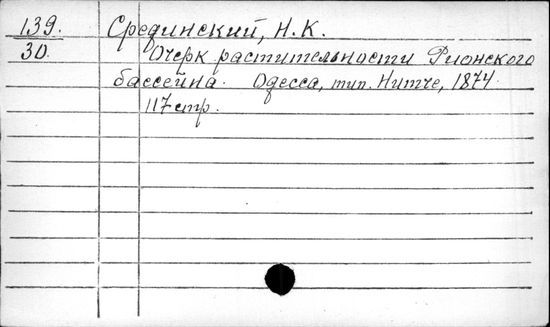 139. Срединский, Н. К.
30. Очерк растительности Рионского
бассейна. Одесса, тип. Нитче, 1874.
117 стр.